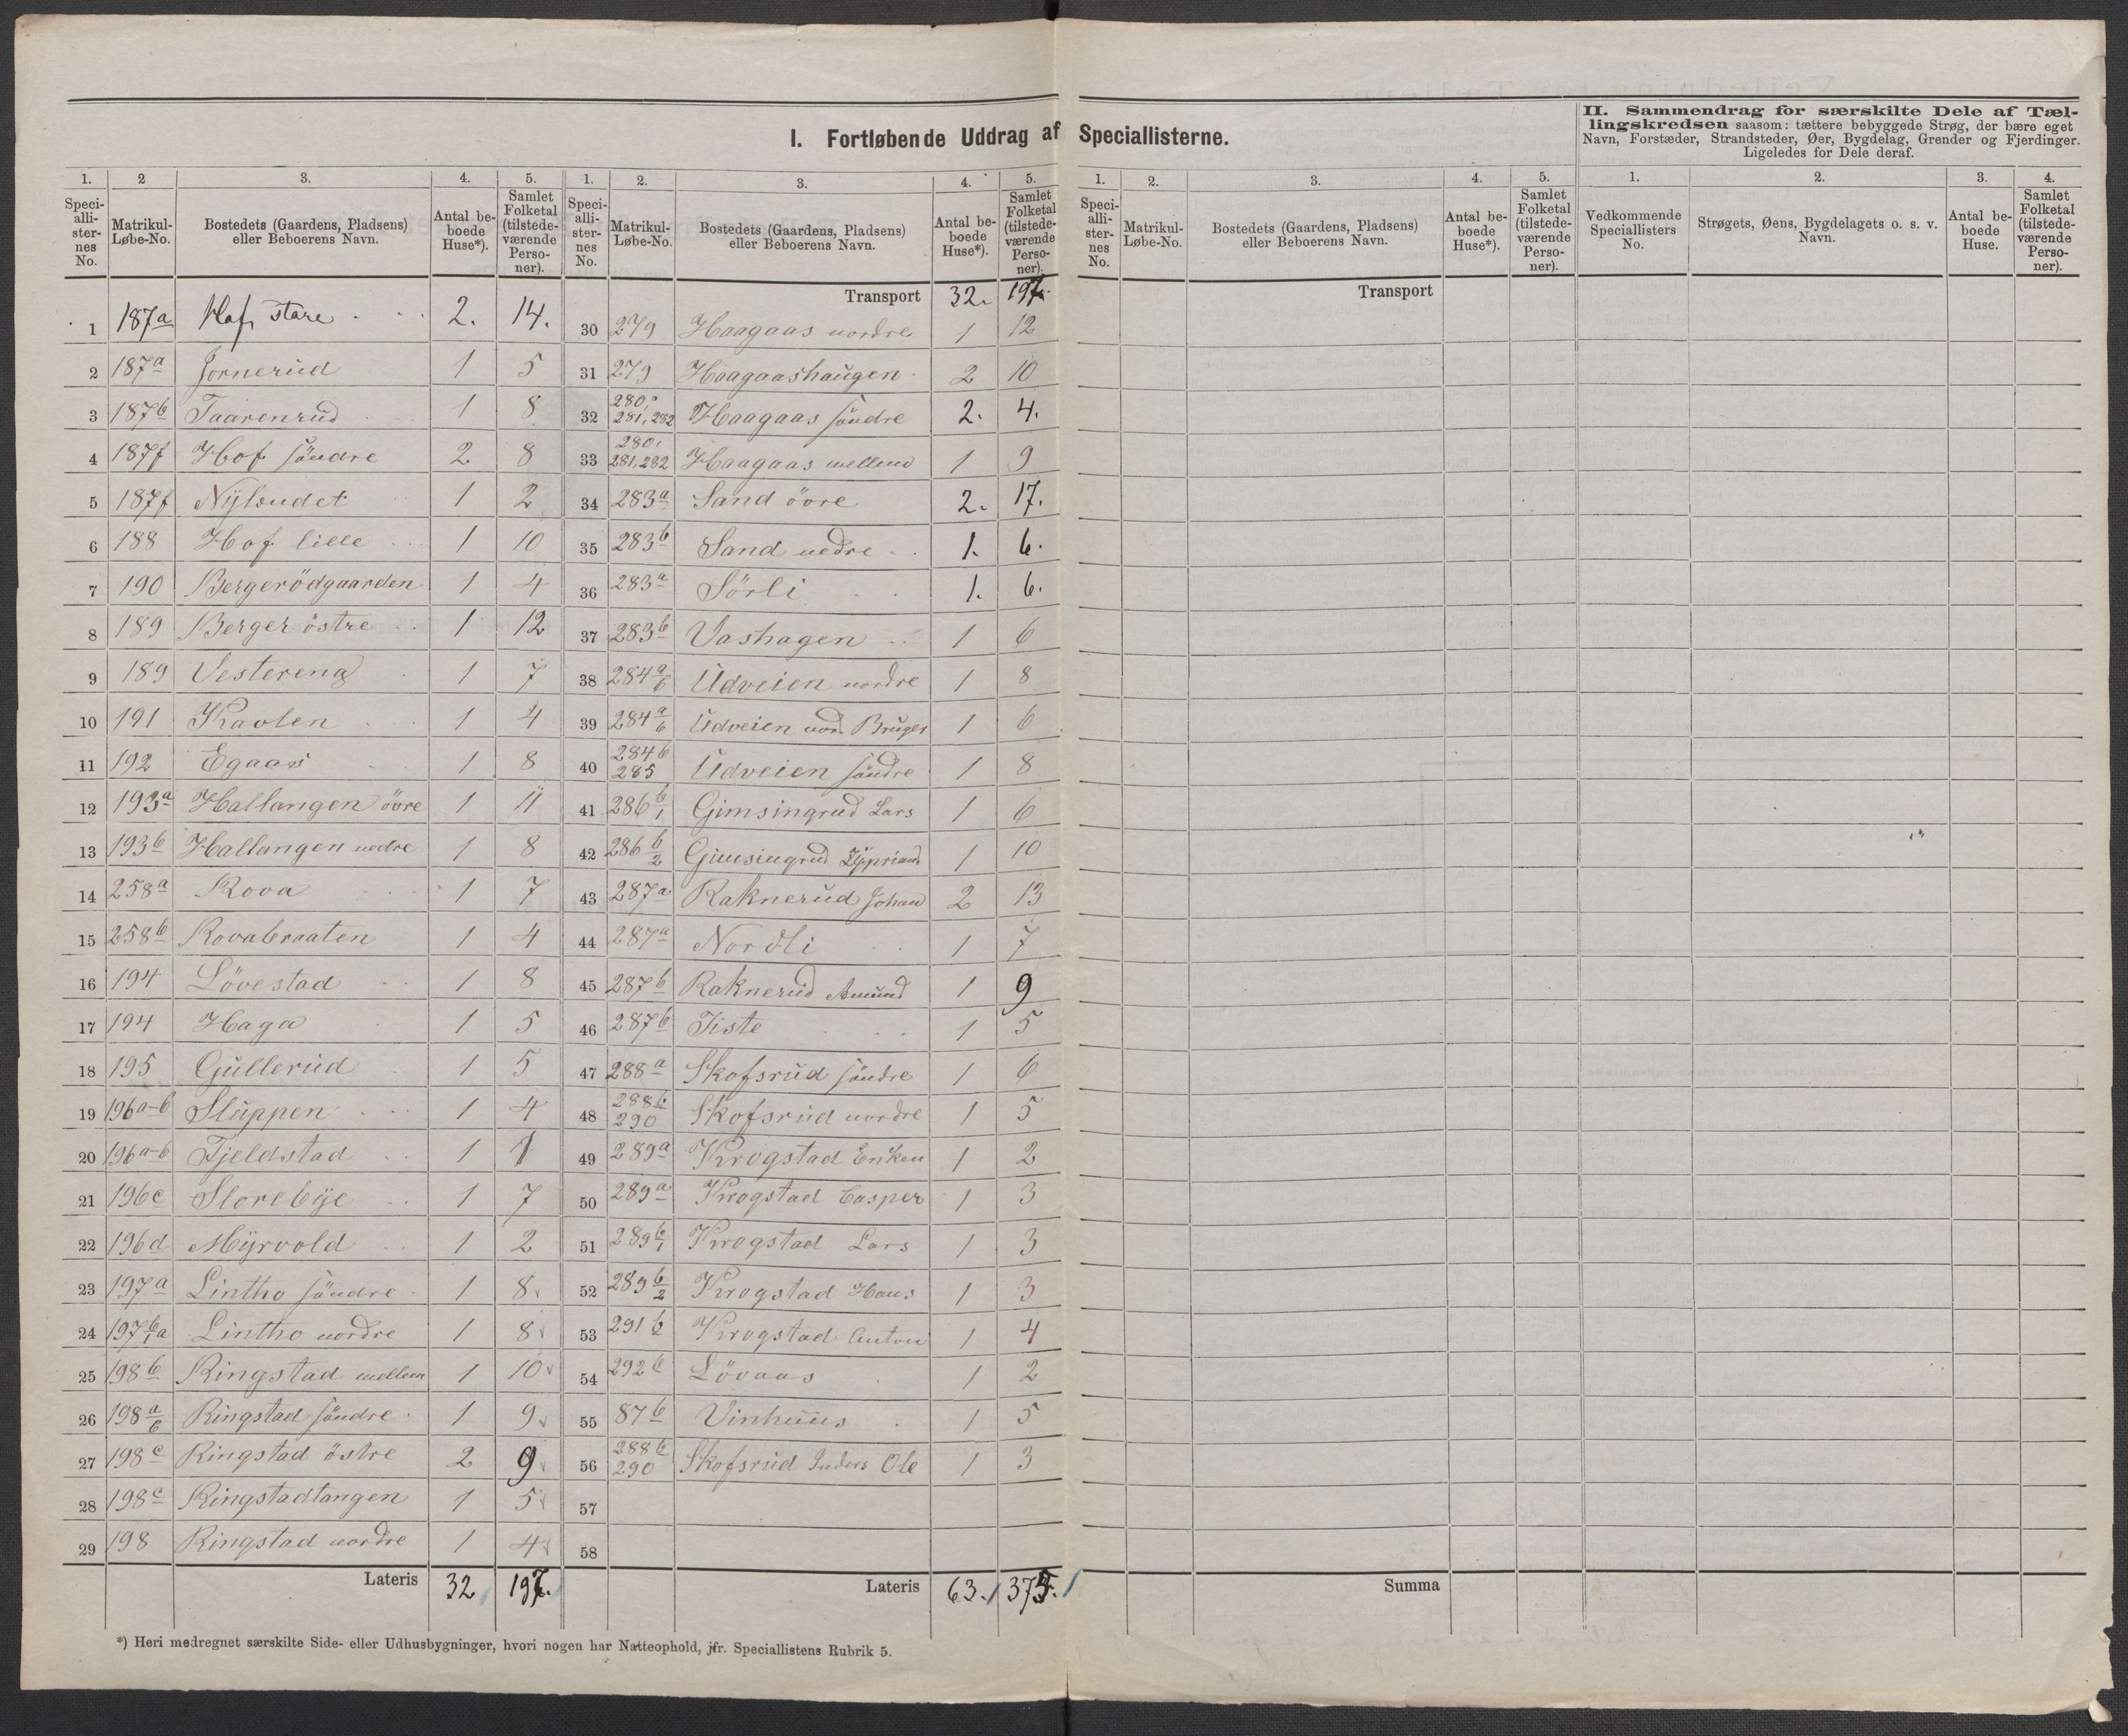 I. Fortløbende Uddrag af Speciallisterne.
II. Sammendrag for særskilte Dele af Tæl-
lingskredsen saasom: tættere bebyggede Strøg, der bære eget
Navn, Forstæder, Strandsteder, Øer, Bygdelag, Grender og Fjerdinger.
Ligeledes for Dele deraf.
1. 2 3. 4. 5. 1. 2. 3. 4. 5. 1. 2. 3. 4. 5. 1. 2. 3. 4.
Speci-alli-ster-nes No. Matrikul-Løbe-No. Bostedets (Gaardens, Pladsens) eller Beboerens Navn. Antal be-boede Huse*). Samlet Folketal (tilstede-værende Perso-ner).
Speci-alli-ster-nes No. Matrikul-Løbe-No. Bostedets (Gaardens, Pladsens) eller Beboerens Navn. Antal be-boede Huse*). Samlet Folketal (tilstede-værende Perso-ner).
Speci-alli-ster-nes No. Matrikul-Løbe-No. Bostedets (Gaardens, Pladsens) eller Beboerens Navn. Antal be-boede Huse*). Samlet Folketal (tilstede-værende Perso-ner).
Vedkommende Speciallisters No. Strøgets, Øens, Bygdelagets o. s. v. Navn. Antal be-boede Huse. Samlet Folketal (tilstede-værende Perso-ner).
1 187a Hof store 2. 14.
2 187a Jornerud 1 5
3 187b Taarenrud 1 8
4 187f Hof søndre 2 8
5 187f Nylsudet 1 2
6 188 Hof lille 1 10
7 190 Bergerödgaarden 1 4
8 189 Berger östre 1 12
9 189 Vestereng 1 7
10 191 Kaolen 1 4
11 192 Egaas 1 8
12 193a Hallangen övre 1 11
13 193b Hallangen nedre 1 8
14 258a Rova 1 7
15 258b Rovabraaten 1 4
16 194 Lövestad 1 8
17 194 Haga 1 5
18 195 Gullerud 1 5
19 196a-b Sluppen 1 4
20 196a-b Fjeldstad 1 1
21 196c Storebye 1 7
22 196d Myrvold 1 2
23 197a Lintho söndre 1 8
24 197b/1a Lintho nordre 1 8
25 198b Ringstad mellem 1 10
26 198a/b Ringstad söndre 1 9
27 198c Ringstad östre 2 9
28 198c Ringstadtangen 1 5
29 198 Ringstad nordre 1 4
Lateris 32 197.
Transport 32. 197.
30 279 Haagaas nordre 1 12
31 279 Haagaashaugen 2 10
32 280, 281, 282 Haagaas söndre 2. 4.
33 280, 281, 282 Haagaas mellem 1 9
34 283a Sand övre 2. 17.
35 283b Sand nedre 1. 6.
36 283a Sörli 1. 6.
37 283b Vashagen 1 6
38 284a/b Udveien nordre 1 8
39 284a/b Udveien nord Bruger 1 6
40 284b 285 Udveien söndre 1 8
41 286b/1 Gimsingrud Lars 1 6
42 286b/2 Gimsingrud Zyprian 1 10
43 287a Raknerud Johan 2 13
44 287a Nordli 1 7
45 287b Raknerud Amund 1 9
46 287b Tiste 1 5
47 288a Skofsrud söndre 1 6
48 288b 290 Skofsrud nordre 1 5
49 289a Krogstad Enken 1 2
50 289a Krogstad Casper 1 3
51 289b/1 Krogstad Lars 1 3
52 289b/2 Krogstad Hans 1 3
53 291b Krogstad Anton 1 4
54 292b Lövaas 1 2
55 87b Vinhuus 1 5
56 288b 290 Skofsrud Inders Ole 1 3
57
58
Lateris 63. 375.
Transport
Summa
*) Heri medregnet særskilte Side- eller Udhusbygninger, hvori nogen har Natteophold, jfr. Speciallistens Rubrik 5.